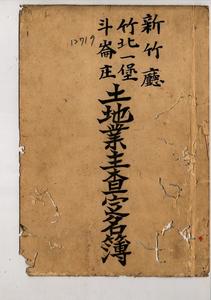 新竹廳
竹北一堡
斗崙庄
12719
土地業主查定名簿